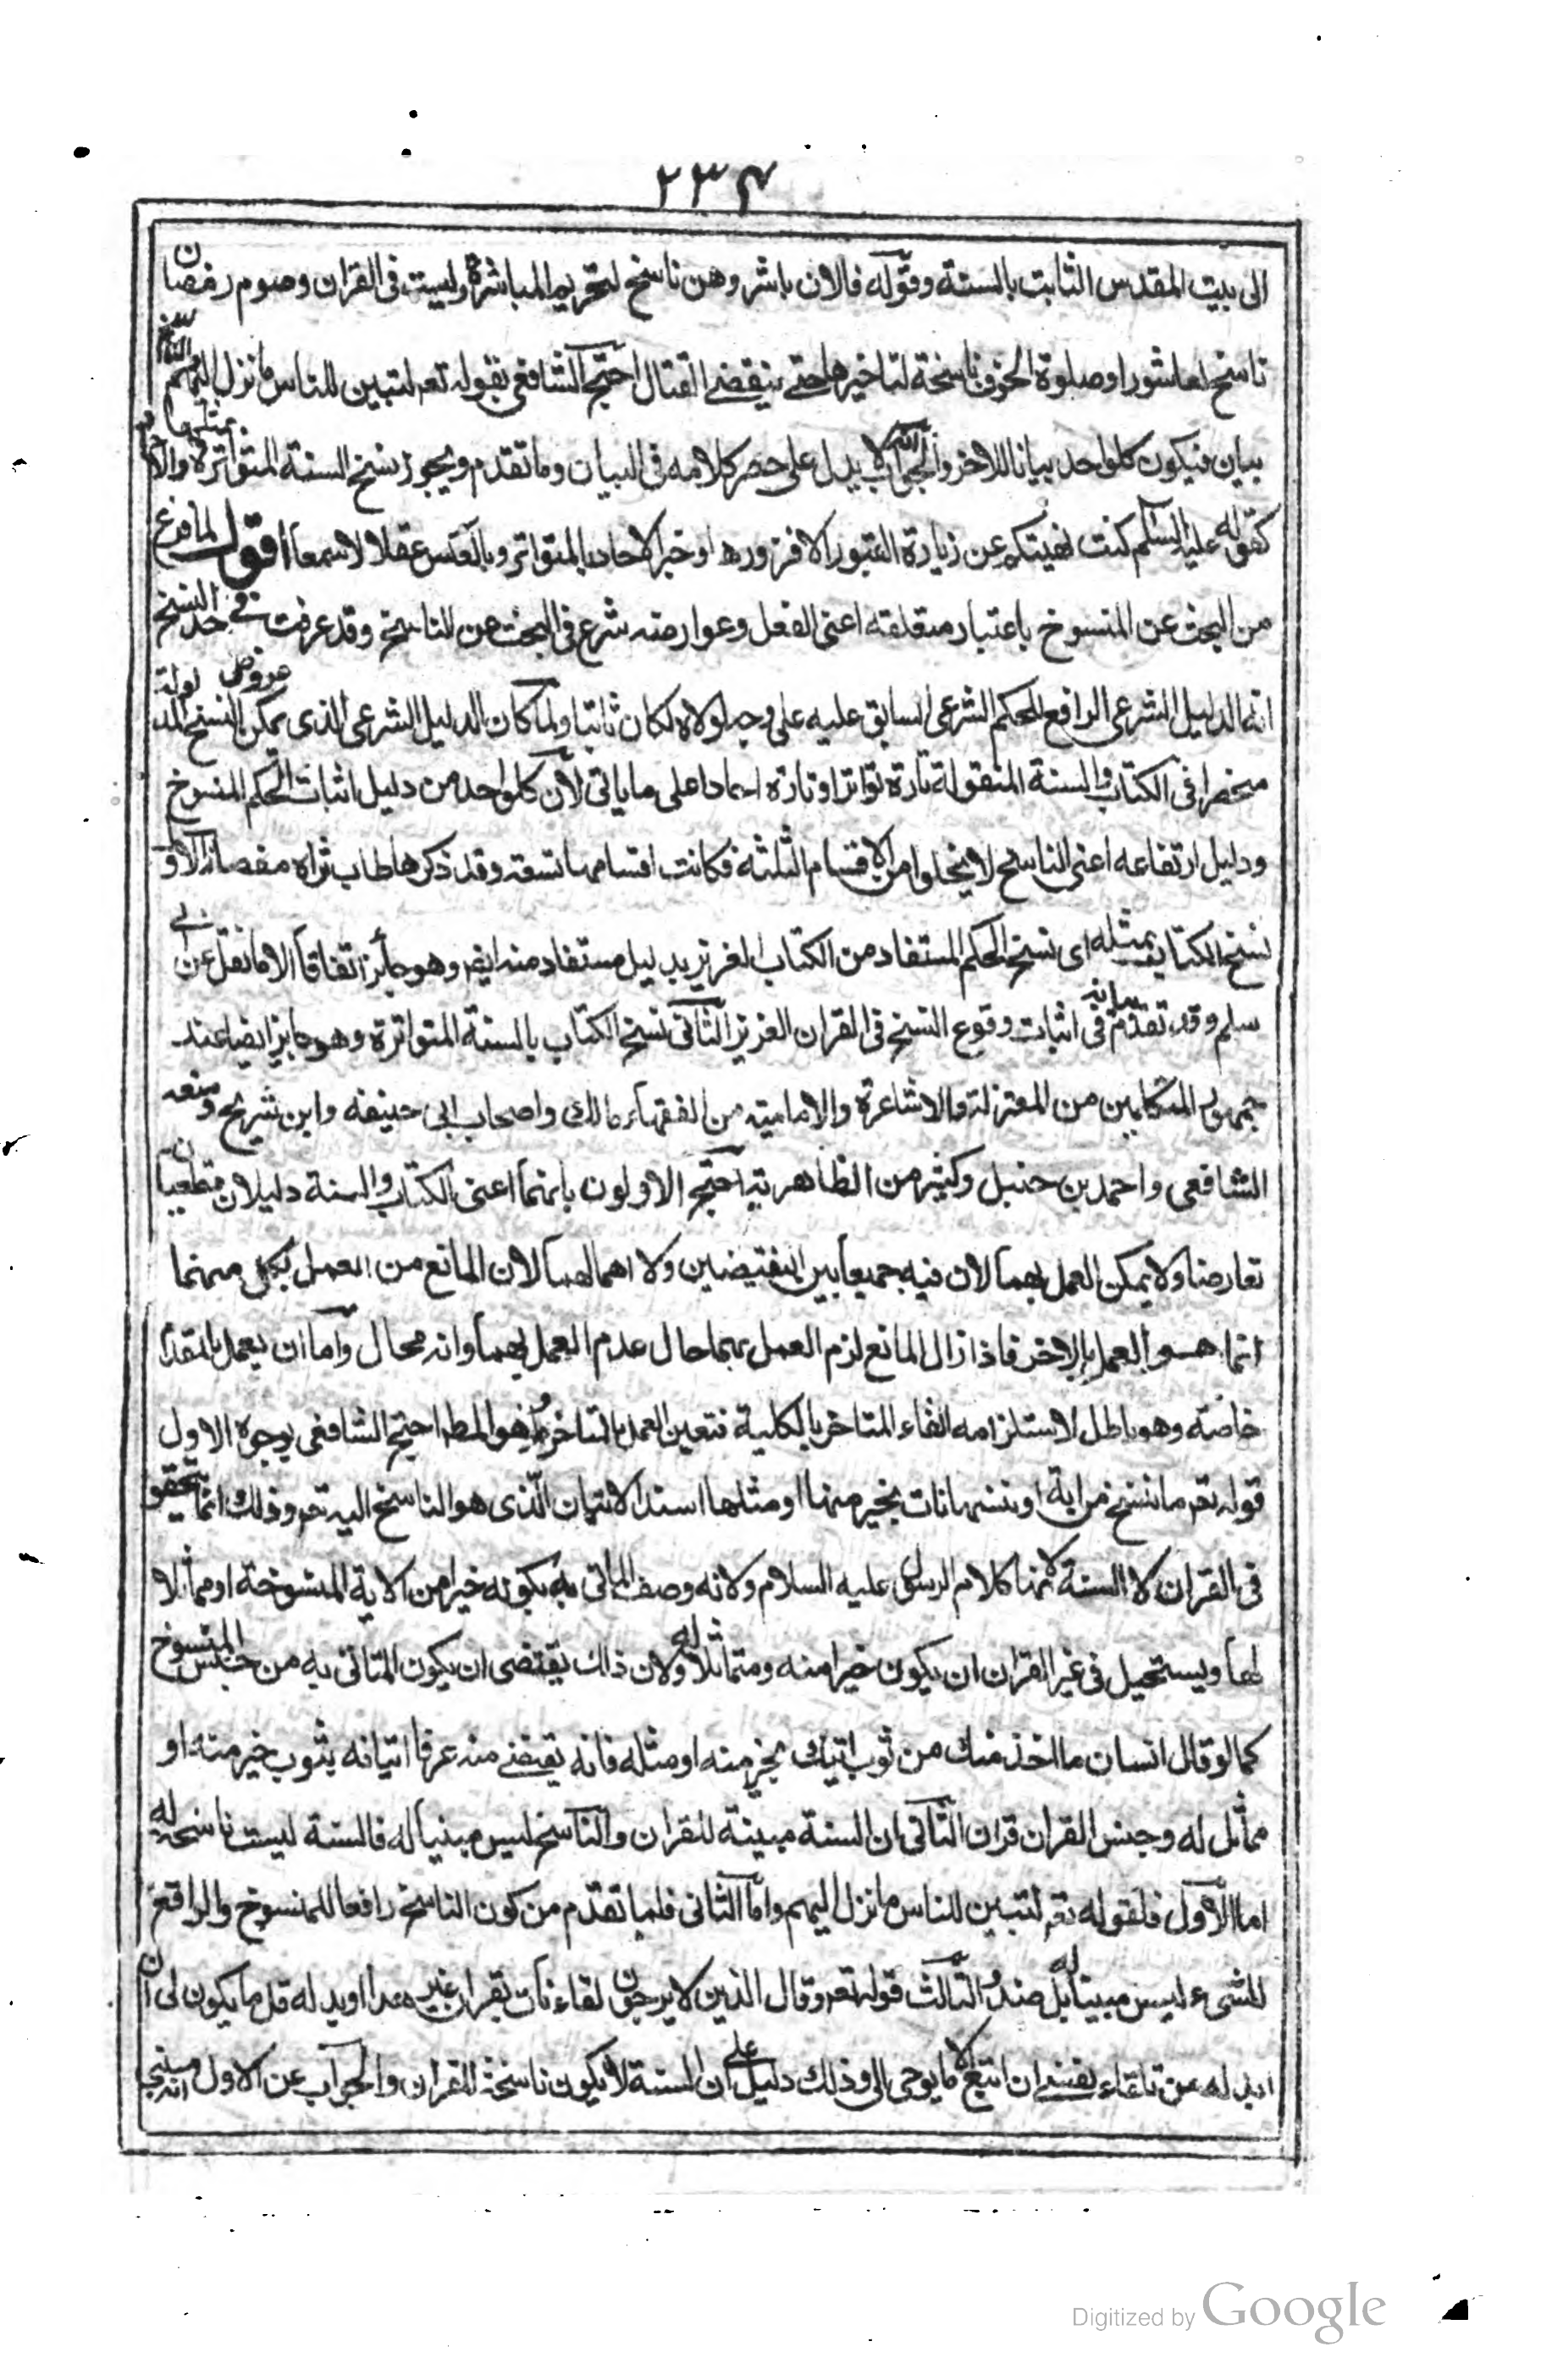 ٢٣۴
الى بيت المقدس الثابت بالسنة وقوله فالان باشروهن ناسخ لتحريم المباشرة وليست فى القران وصوم رمضان
ناسخ لعاشورا وصلوة الخوف ناسخة لتاخيرها حتى ينقضى القتال احتج الشافعى بقوله تعم لتبين للناس ما نزل اليهم الناسخ
بيان فيكون كل واحد بيانا للاخر والجواب لا يدل على حصر كلامه فى البيان وما تقدم ويجوز نسخ السنة المتواترة بمثلها والاحاد
كقوله عليه السلم كنت نهيتكم عن زيارة القبور الا فزوروها وخبر الاحاد بالمتواتر وبالعكس عقلا لا سمعا اقول لما فرغ
من البحث عن المنسوخ باعتبار متعلقه اعنى الفعل وعوارضه شرع فى البحث عن الناسخ وقد عرفت فى حد النسخ
انه الدليل الشرعى الرافع للحكم الشرعى السابق عليه على وجه لولاه لكان ثابتا ولما كان الدليل الشرعى الذى يمكن النسخ
منحصرا فى الكتاب والسنة المنقولة تارة تواترا وتارة احادا على ما ياتى لان كل واحد من دليل اثبات الحكم المنسوخ
ودليل ارتفاعه اعنى الناسخ لا يخلوا من الاقسام الثلثة فكانت اقسامها تسعة وقد ذكرها طاب ثراه مفصلة الاول
نسخ الكتاب بمثله اى نسخ الحكم المستفاد من الكتاب العزيز بدليل مستفاد منه ايضا وهو جايز اتفاقا الا ما نقل عن ابى
سلم وقد تقدم بيانه فى اثبات وقوع النسخ فى القران العزيز الثانى نسخ الكتاب بالسنة المتواترة وهو جايز ايضا عند
جمهور المتكلمين من المعتزلة والاشاعرة والامامية من الفقهاء مالك واصحاب ابى حنيفه وابن شريح ومنعه
الشافعى واحمد بن حنبل وكثير من الظاهرية احتج الاولون بانهما اعنى الكتاب والسنة دليلان قطعيان
تعارضا ولا يمكن العمل بهما لان فيه جميعا بين النقيضين ولا اهمالهما لان المانع من العمل بكل منهما
انما هو العمل بالاخر فاذا زال المانع لزم العمل بهما حال عدم العمل بهما وانه محال واما ان يعمل بالمتقدم
خاصة وهو باطل لاستلزامه الغاء المتاخر بالكلية فتعين العمل بالمتاخر وهو المطلـ احتج الشافعى بوجوه الاول
قوله تعم ما ننسخ من اية او ننسها نات بخير منها او مثلها اسند الاتيان الذى هو الناسخ اليه تعم وذلك انما يتحقق
فى القران لا السنة لانها كلام الرسول عليه السلام ولانه وصف الماتى به بكونه خيرا من الاية المنسوخة او مماثلا
لها ويستحيل فى غير القران ان يكون خيرا منه ومتماثلا له ولان ذلك يقتضى ان يكون الماتى به من جنس المنسوخ
كما لو قال انسان ما اخذ منك من ثوب اتيك بخير منه او مثله فانه يقتضى منه عرفا اتيانه بثوب خير منه او
مماثل له وجنس القران قران الثانى ان السنة مبينة للقران والناسخ ليس مبنيا له فالسنة ليست ناسخة له
اما الاول فلقوله تعم لتبين للناس ما نزل اليهم واما الثانى فلما تقدم من كون الناسخ رافعا للمنسوخ والرافع
للشىء ليس مبينا له بل ضده الثالث قوله تعم وقال الذين لا يرجون لقاءنا ات بقران غير هذا او بدله قل ما يكون لى ان
ابدله من تلقاء نفسى ان اتبع الا ما يوحى الى وذلك دليل على ان السنة لا يكون ناسخة للقران والجواب عن الاول
Digitized by Google